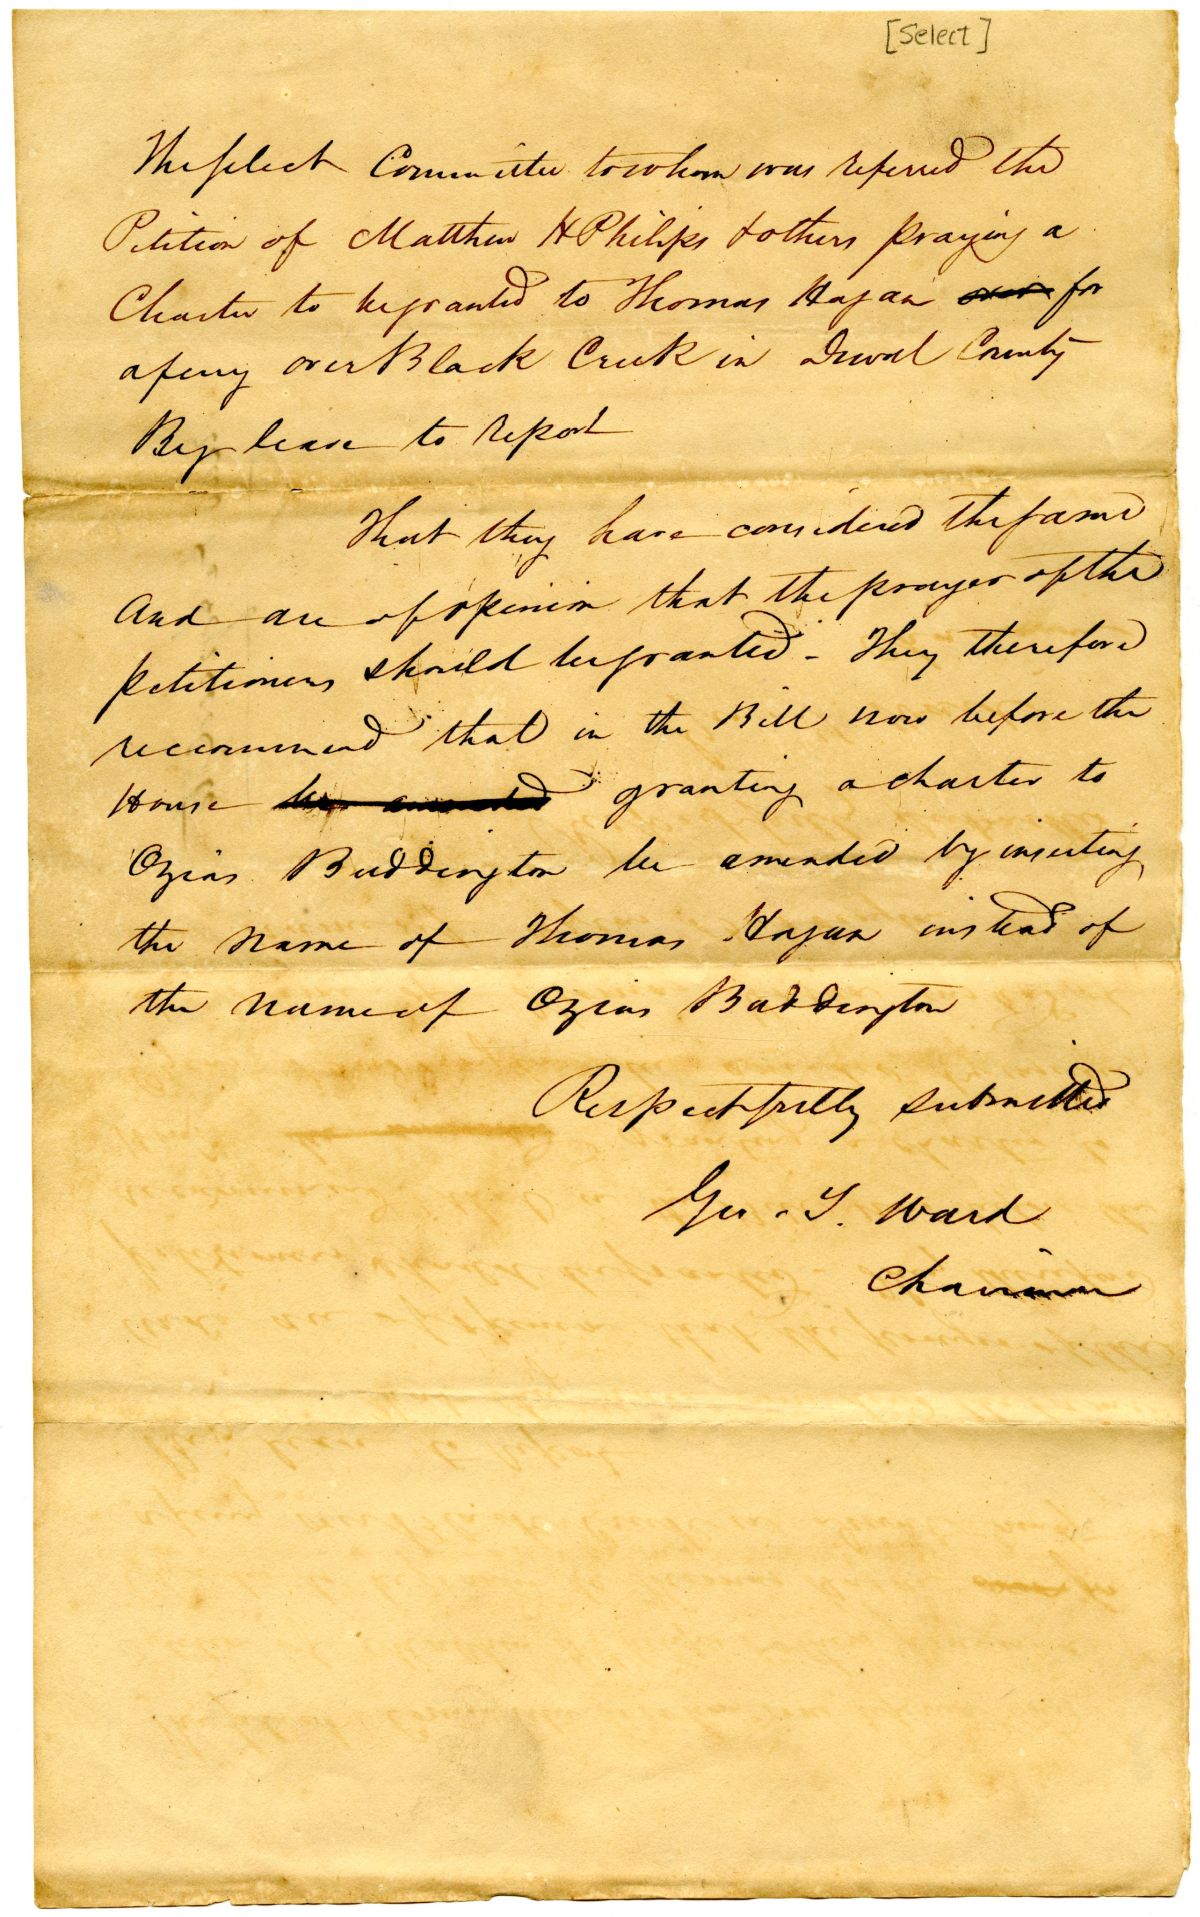 [Select]
The select Committee to whom was referred the
Petition of Matthew H Philips & others praying a
Charter to be granted to Thomas Hagan over for
a ferry over Black Creek in Duval County
Beg leave to report
That they have considered the same
And are of opinion that the prayer of the
petitioners should be granted - They therefore
reccommend that in the Bill now before the
House be amended granting a charter to
Ozias Buddington be amended by inserting
the name of Thomas Hagan instead of
the name of Ozias Buddington
Respectfully submitted
Geo. T. Ward
Chairman